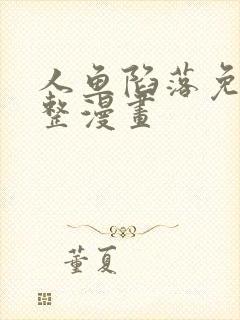 人鱼陷落免
整漫畫
董夏